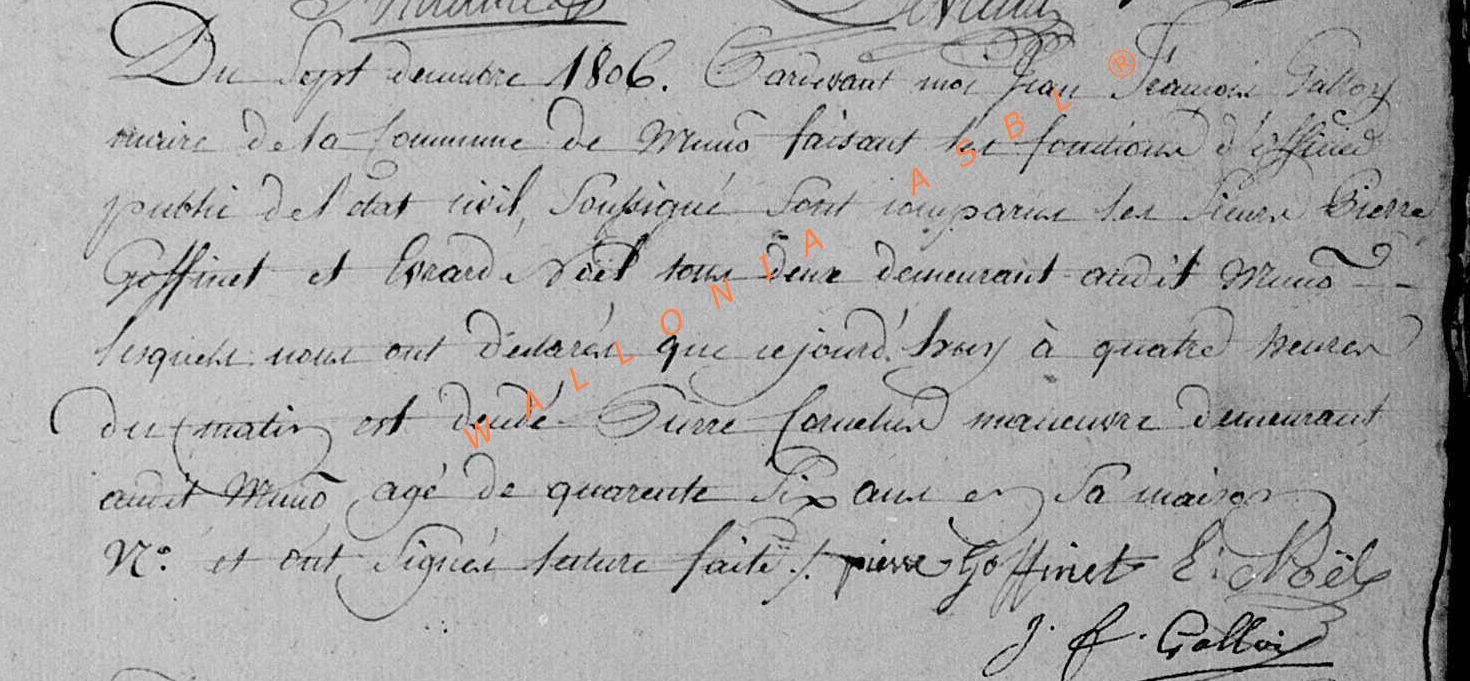 Du Sept decembre 1806. Pardevant moi Jean François Galloy
maire de la Commune de Muno faisant les fonctions d'officier
public de l'etat civil, Soussigné Sont comparus les Sieurs Pierre
Goffinet et Evrard Noël tous deux demeurant audit Muno
lesquels nous ont déclarés que cejourd'huy à quatre heures
du matin est décédé Pierre Cornelius maneuvre demeurant
audit Muno agé de quarente Six ans en Sa maison
N.° et ont Signés lecture faite ./. pierre Goffinet E: Noël
J. f. Galloy
WALLONIA ASBL ®